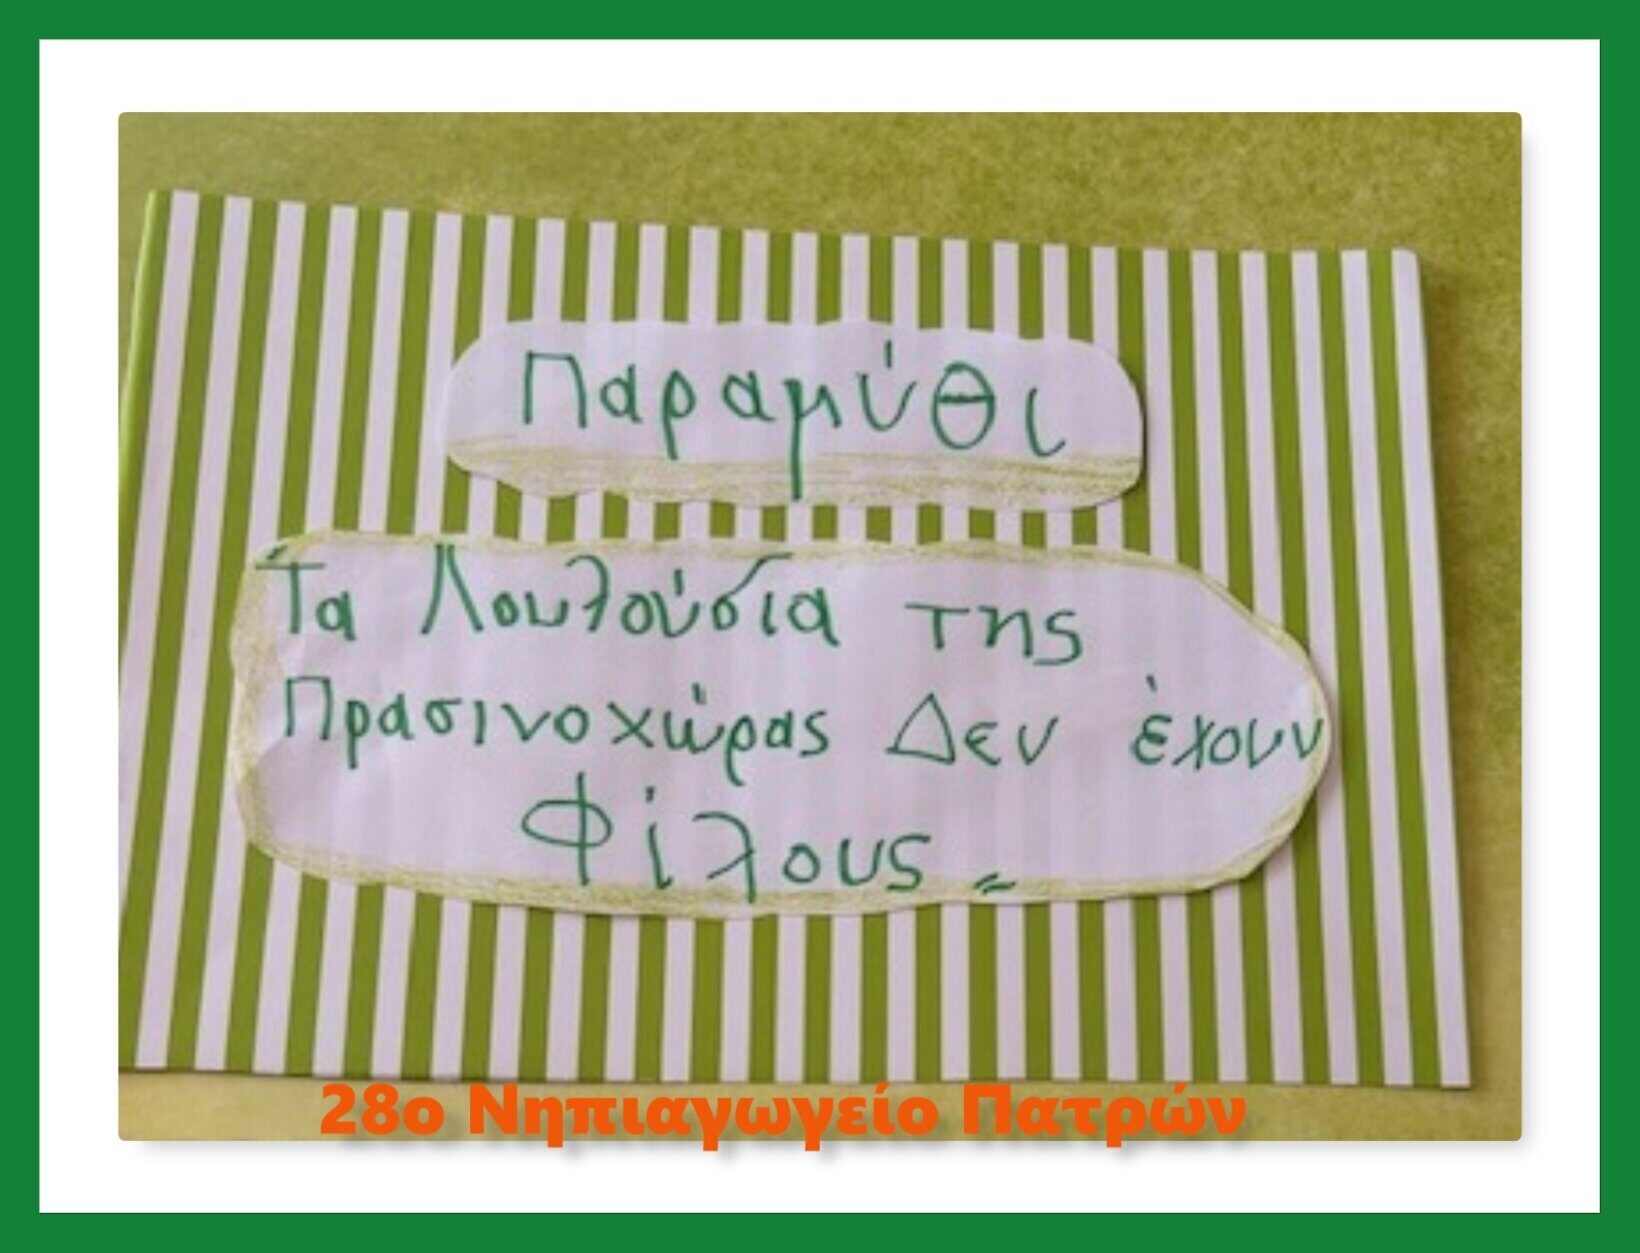 Παραμύθι
Τα Λουλούδια της
Πρασινοχώρας Δεν έχουν
Φίλους
28ο Νηπιαγωγείο Πατρών